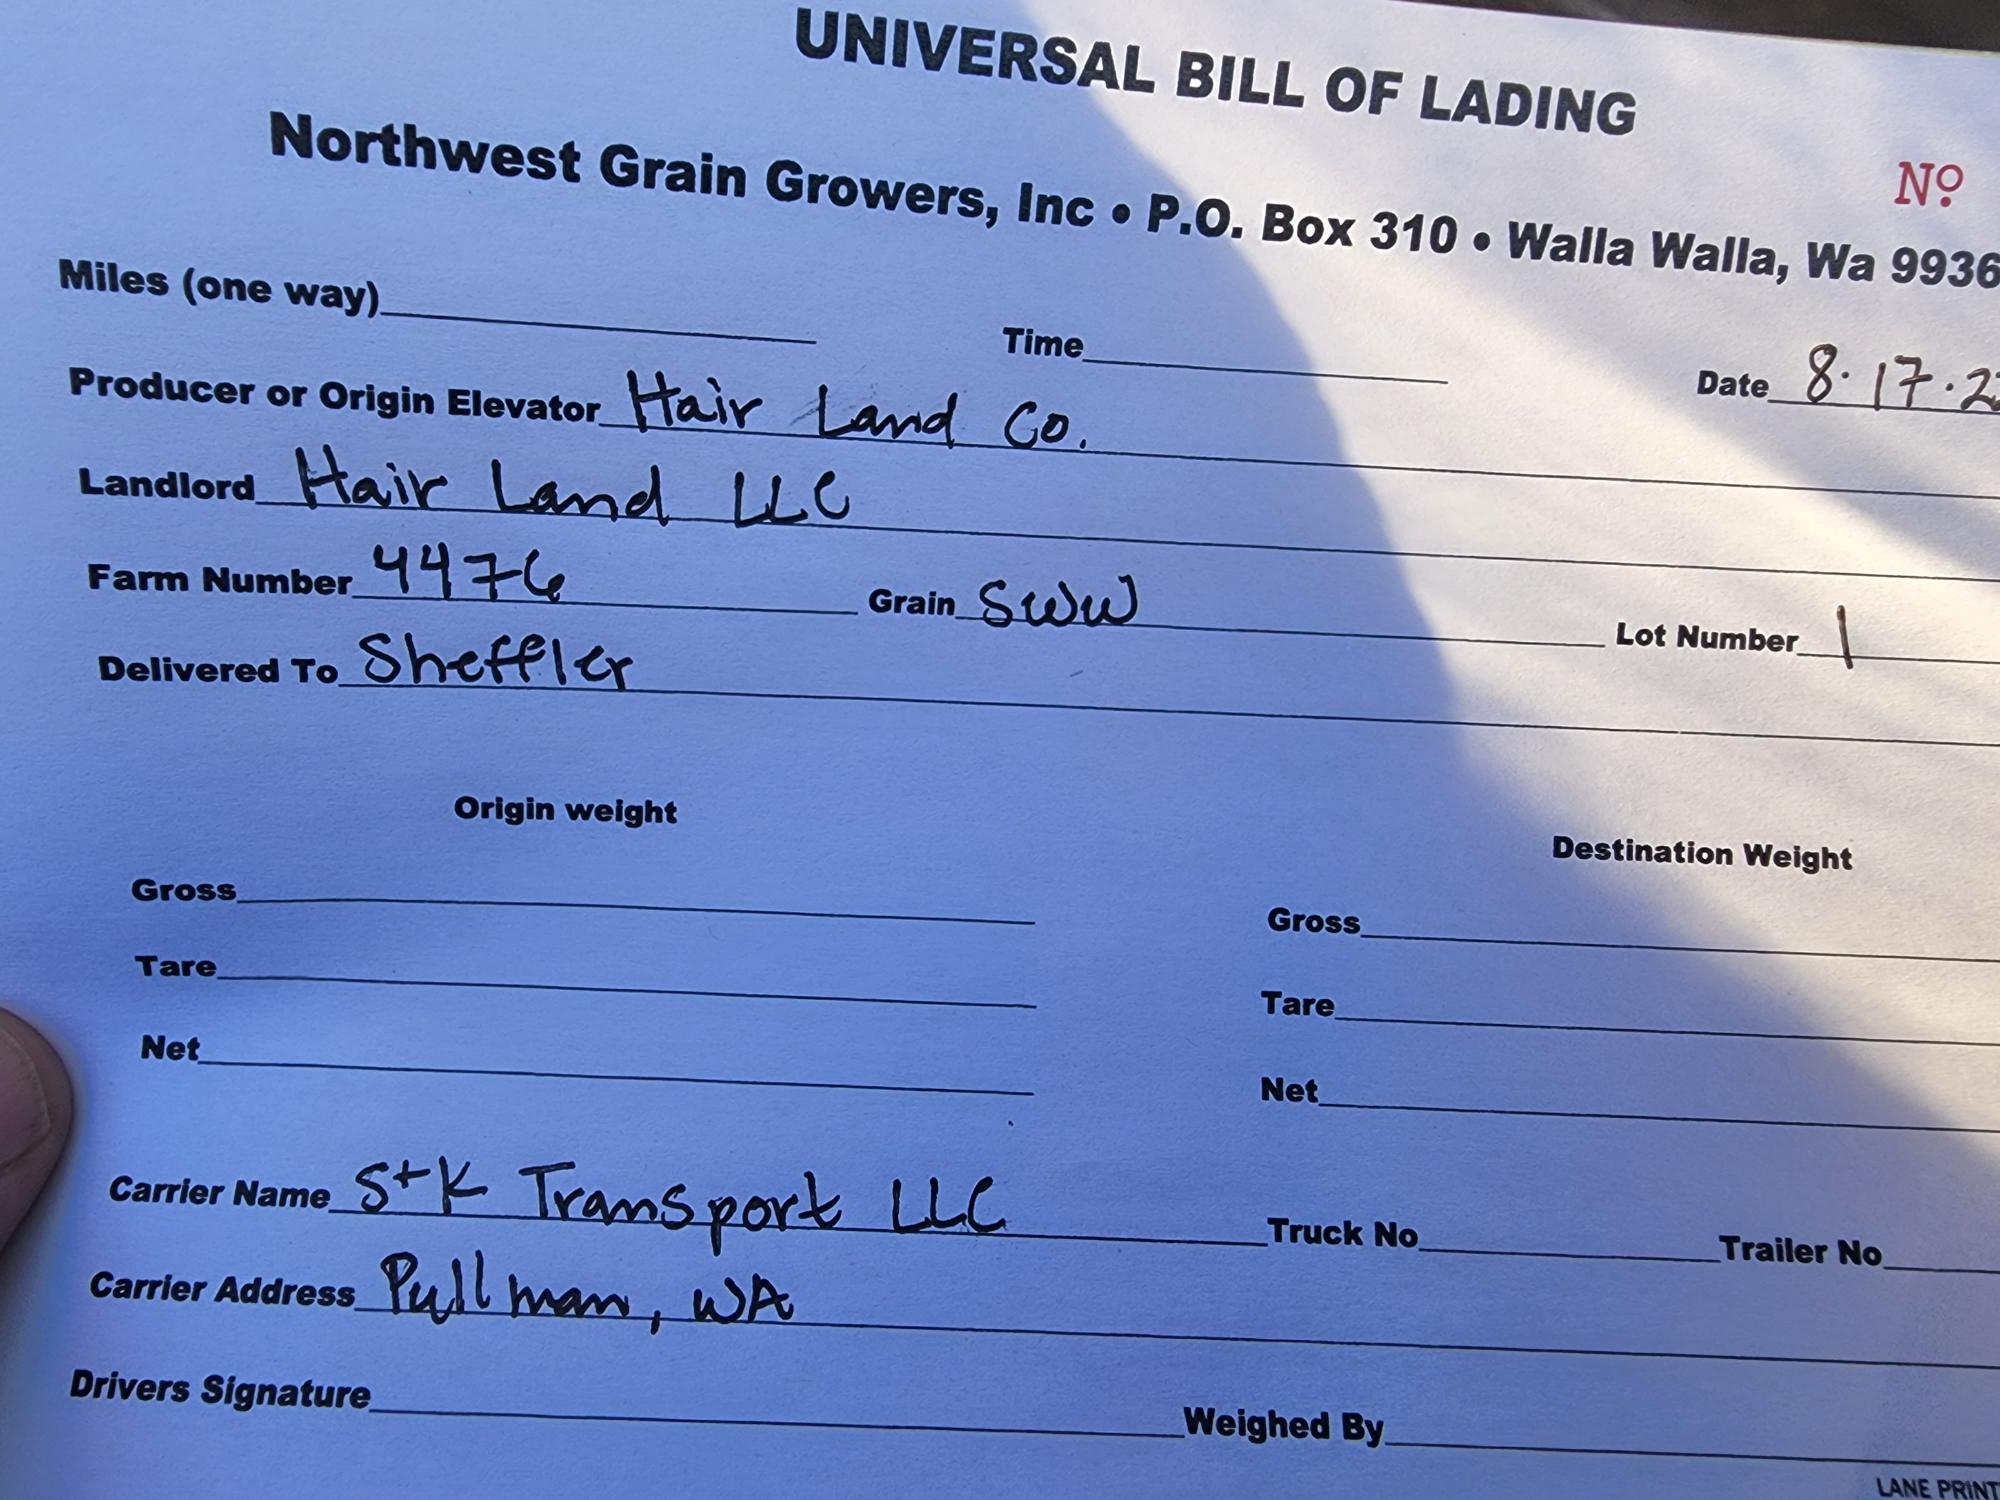 UNIVERSAL BILL OF LADING
Nº
Northwest Grain Growers, Inc • P.O. Box 310 • Walla Walla, Wa 9936
Miles (one way) Time Date 8.17.2
Producer or Origin Elevator Hair Land Co.
Landlord Hair Land LLC
Farm Number 4476 Grain SWW Lot Number 1
Delivered To Sheffler
Origin weight Destination Weight
Gross Gross
Tare Tare
Net Net
Carrier Name S+K Transport LLC Truck No Trailer No
Carrier Address Pullman, WA
Drivers Signature Weighed By
LANE PRINT